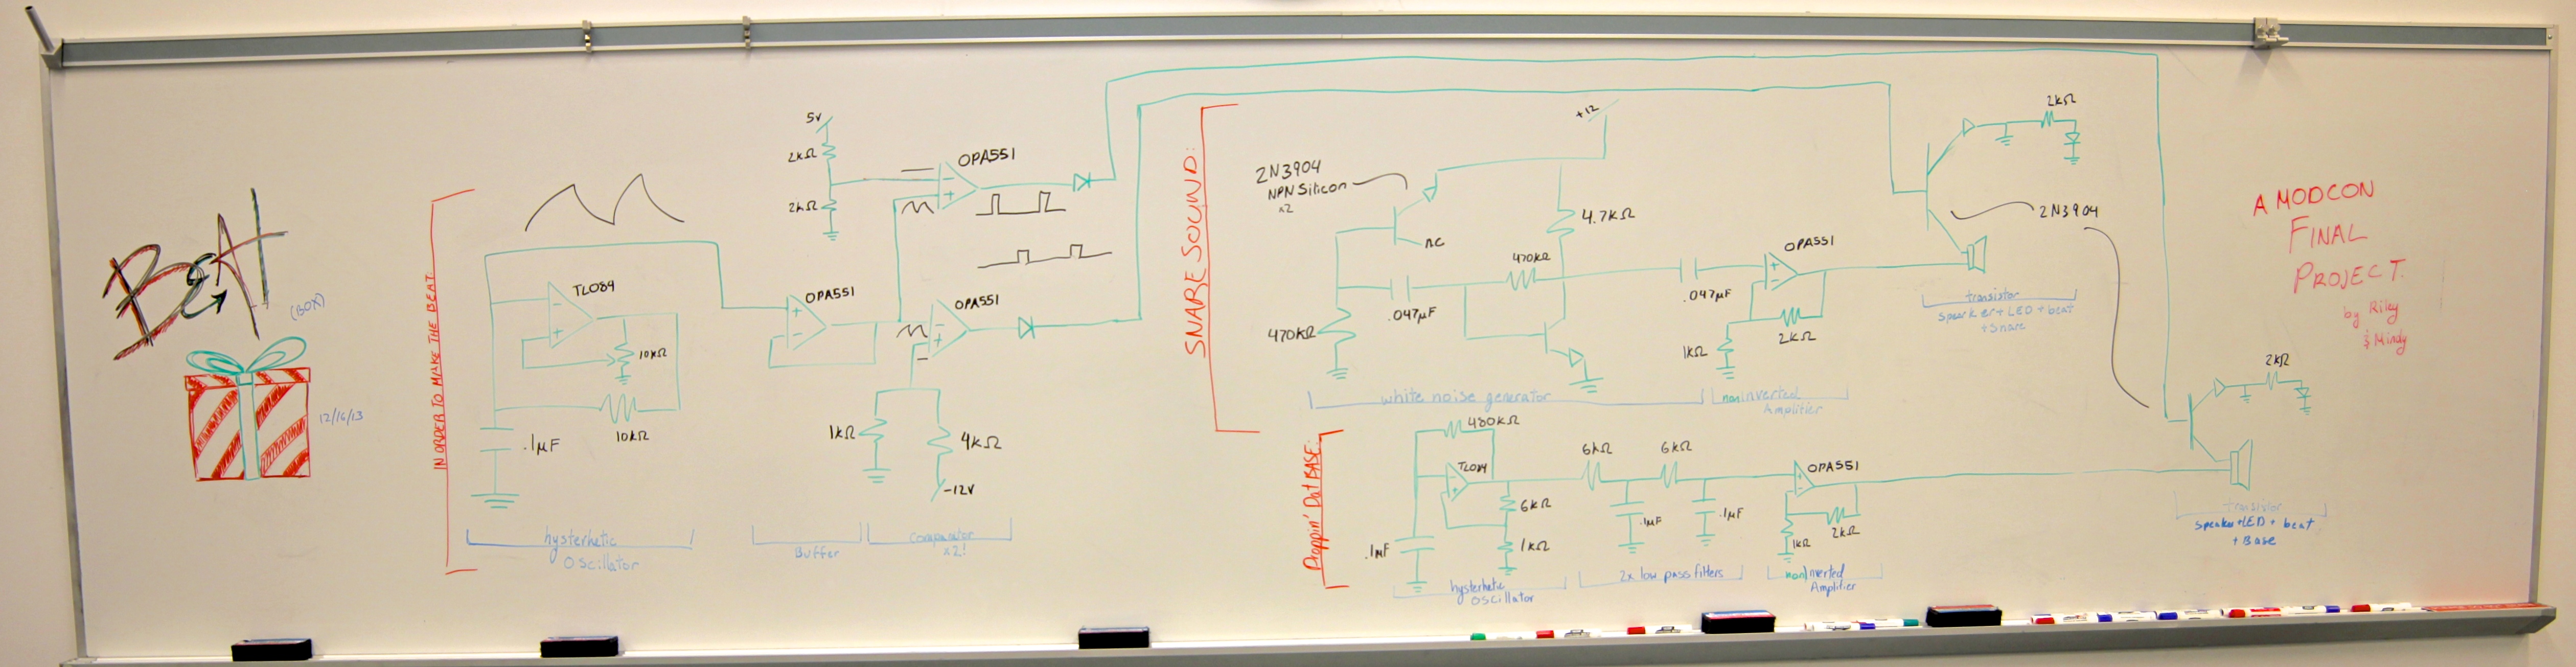 BEAT
(BOX)
12/16/13
IN ORDER TO MAKE THE BEAT:
TL084
10kΩ
10kΩ
.1μF
hysterhetic
Oscillator
OPA551
Buffer
5v
2kΩ
2kΩ
OPA551
OPA551
1kΩ
4kΩ
-12V
Comparator
x2!
SNARE SOUND:
2N3904
NPN Silicon
x2
+12
NC
4.7kΩ
470kΩ
.047μF
470kΩ
.047μF
OPA551
2kΩ
1kΩ
white noise generator
noninverted
Amplifier
2kΩ
2N3904
transistor
speaker+LED+beat
+Snare
Droppin' Dat BASE:
480kΩ
TL084
6kΩ
1kΩ
.1μF
hysterhetic
Oscillator
6kΩ
6kΩ
.1μF
.1μF
2x low pass filters
OPA551
2kΩ
1kΩ
noninverted
Amplifier
2kΩ
transistor
speaker+LED+beat
+Base
A MODCON
FINAL
PROJECT.
by Riley
& Mindy